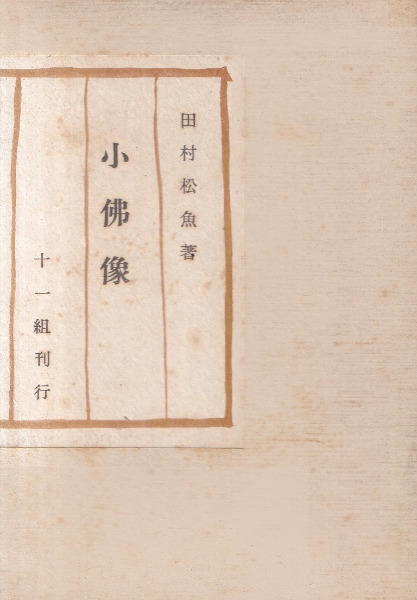 田村松魚著
小佛像
十一組刊行